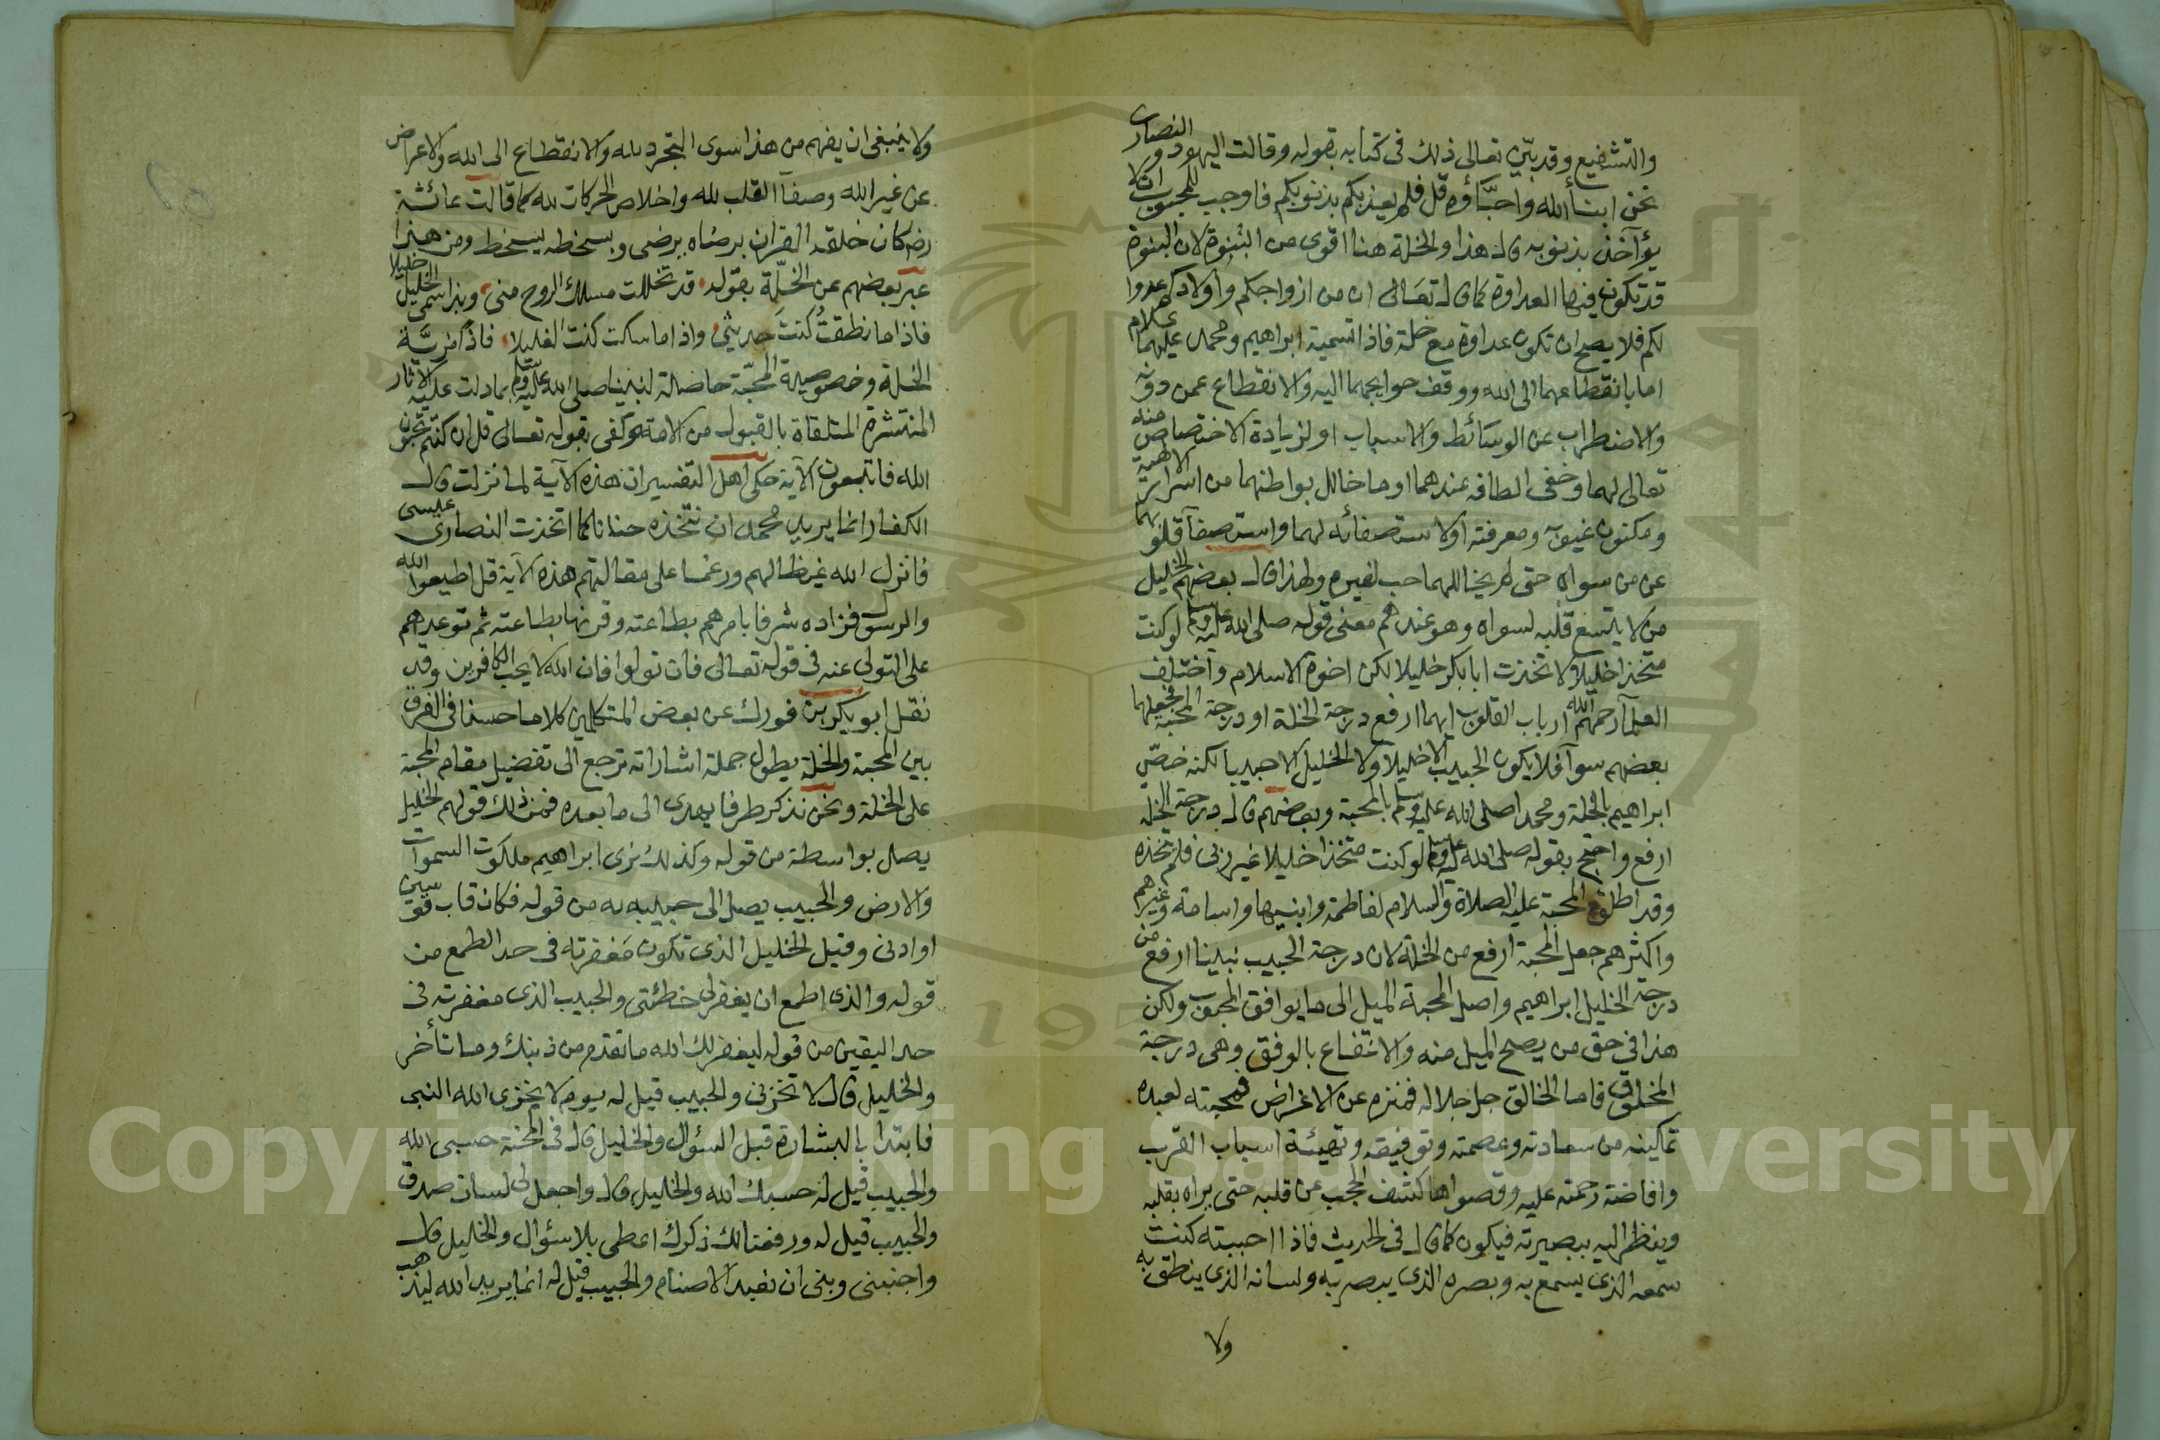 والتشفيع وقد بيّن تعالى ذلك في كتابه بقوله وقالت اليهود والنصارى
نحن ابنأ الله واحبّاؤه قل فلم يعذبكم بذنوبكم فاوجب للمحبوب ان لا
يؤآخذ بذنوبه قال هذا والخلة هنا اقوى من البنوة لان البنوة
قد تكون فيها العداوة كما قال تعالى ان من ازواجكم واولادكم عدوا
لكم فلا يصح ان تكون عداوة مع خلة فاذا تسمية ابراهيم ومحمد عليهما
اما بانقطاعهما الى الله ووقف حوايجهما اليه والانقطاع عمن دونه
والاضطراب عن الوسائط والاسباب او لزيادة الاختصاص منه
تعالى لهما وخفي الطافه عندهما وما خالل بواطنهما من اسرار الاهية
ومكنون غيوبه ومعرفته او لاستصفائه لهما واستصفآ قلوبهما
عن من سواه حتى لم يخاللهما حب لغيره ولهذا قال بعضهم الخليل
من لا يتسع قلبه لسواه وهو عندهم معنى قوله صلى الله عليه وسلم لو كنت
متخذا خليلا لاتخذت ابا بكر خليلا لكن اخوة الاسلام واختلف
العلمآ رحمهم الله ارباب القلوب ايهما ارفع درجة الخلة او درجة المحبة فجعلهما
بعضهم سوآ فلا يكون الحبيب الا خليلا ولا الخليل الا حبيبا لكنه خصّ
ابراهيم بالخلة ومحمدا صلى الله عليه وسلم بالمحبة وبعضهم قال درجة الخلة
ارفع واحتج بقوله صلى الله عليه وسلم لو كنت متخذا خليلا غير ربى فلم يتخذه
وقد اطلق المحبة عليه الصلاة والسلام لفاطمة وابنيها واسامة وغيرهم
واكثرهم جعل المحبة ارفع من الخلة لان درجة الحبيب نبينا ارفع من
درجة الخليل ابراهيم واصل المحبة الميل الى ما يوافق المحبوب ولكن
هذا في حق من يصح الميل منه والانتفاع بالوفق وهى درجة
المخلوق فاما الخالق جل جلاله فمنزه عن الاغراض فمحبته لعبده
تمكينه من سعادته وعصمته وتوفيقه وتهيئة اسباب القرب
وافاضة رحمته عليه وقصواها كشف الحجب عن قلبه حتى يراه بقلبه
وينظر اليه ببصيرته فيكون كما قال في الحديث فاذا احببته كنت
سمعه الذى يسمع به وبصره الذى يبصر به ولسانه الذى ينطق به
ولا
ولا ينبغى ان يفهم من هذا سوى التجرد لله والانقطاع الى الله والاعراض
عن غير الله وصفآ القلب لله واخلاص الحركات لله كما قالت عائشة
رضه كان خلقه القران برضاه يرضى وبسخطه يسخط ومن هذا
عبر بعضهم عن الخلّة بقوله قد تخللت مسلك الروح منى وبذا سمى الخليل خليلا
فاذا ما نطقتُ كنتَ حديثى واذا ما سكت كنت الغليلا فاذا مزيّة
الخلة وخصوصية المحبّة حاصلة لنبينا صلى الله عليه وسلم بما دلت عليه الاثار
المنتشرة المتلقاة بالقبول من الامة وكفى بقوله تعالى قل ان كنتم تحبون
الله فاتبعون الآية حكى اهل التفسير ان هذه الآية لما نزلت قال
الكفار انما يريد محمد ان نتخذه حنانا كما اتخذت النصارى عيسى
فانزل الله غيظا لهم ورغما على مقالتهم هذه الآية قل اطيعوا الله
والرسول فزاده شرفا بامرهم بطاعته وقرنها بطاعته ثم توعدهم
على التولى عنه في قوله تعالى فان تولوا فان الله لا يحب الكافرين وقد
نقل ابو بكر بن فورك عن بعض المتكلمين كلاما حسنا في الفرق
بين المحبة والخلة يطول جملة اشاراته ترجع الى تفضيل مقام المحبة
على الخلة ونحن نذكر طرفا يهدى الى ما بعده فمن ذلك قولهم الخليل
يصل بواسطة من قوله وكذلك نرى ابراهيم ملكوت السموات
والارض والحبيب يصل الى حبيبه به من قوله فكان قاب قوسين
او ادنى وقيل الخليل الذى تكون مغفرته في حد الطمع من
قوله والذى اطمع ان يغفر لى خطئتى والحبيب الذى مغفرته في
حد اليقين من قوله ليغفر لك الله ما تقدم من ذنبك وما تأخر
والخليل قال لا تخزنى والحبيب قيل له يوم لا يخزى الله النبى
فابتدا بالبشارة قبل السؤال والخليل قال في المحنة حسبى الله
والحبيب قيل له حسبك الله والخليل قال واجعل لى لسان صدق
والحبيب قيل له ورفعنا لك ذكرك اعطى بلا سؤال والخليل قال
واجنبنى وبنى ان نعبد الاصنام والحبيب قيل له انما يريد الله ليذهب
Copyright © King Saud University